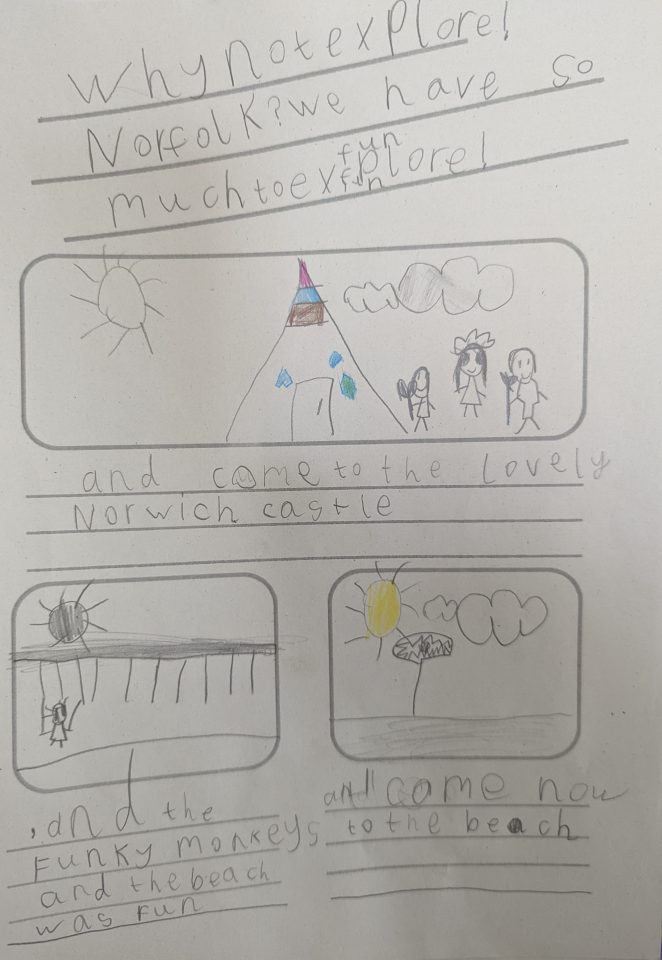 Why not explore!
Norfolk? we have so
fun
much to explore!
fun
and come to the lovely
Norwich castle
, and the
Funky monkeys
and the beach
was fun
and come now
to the beach